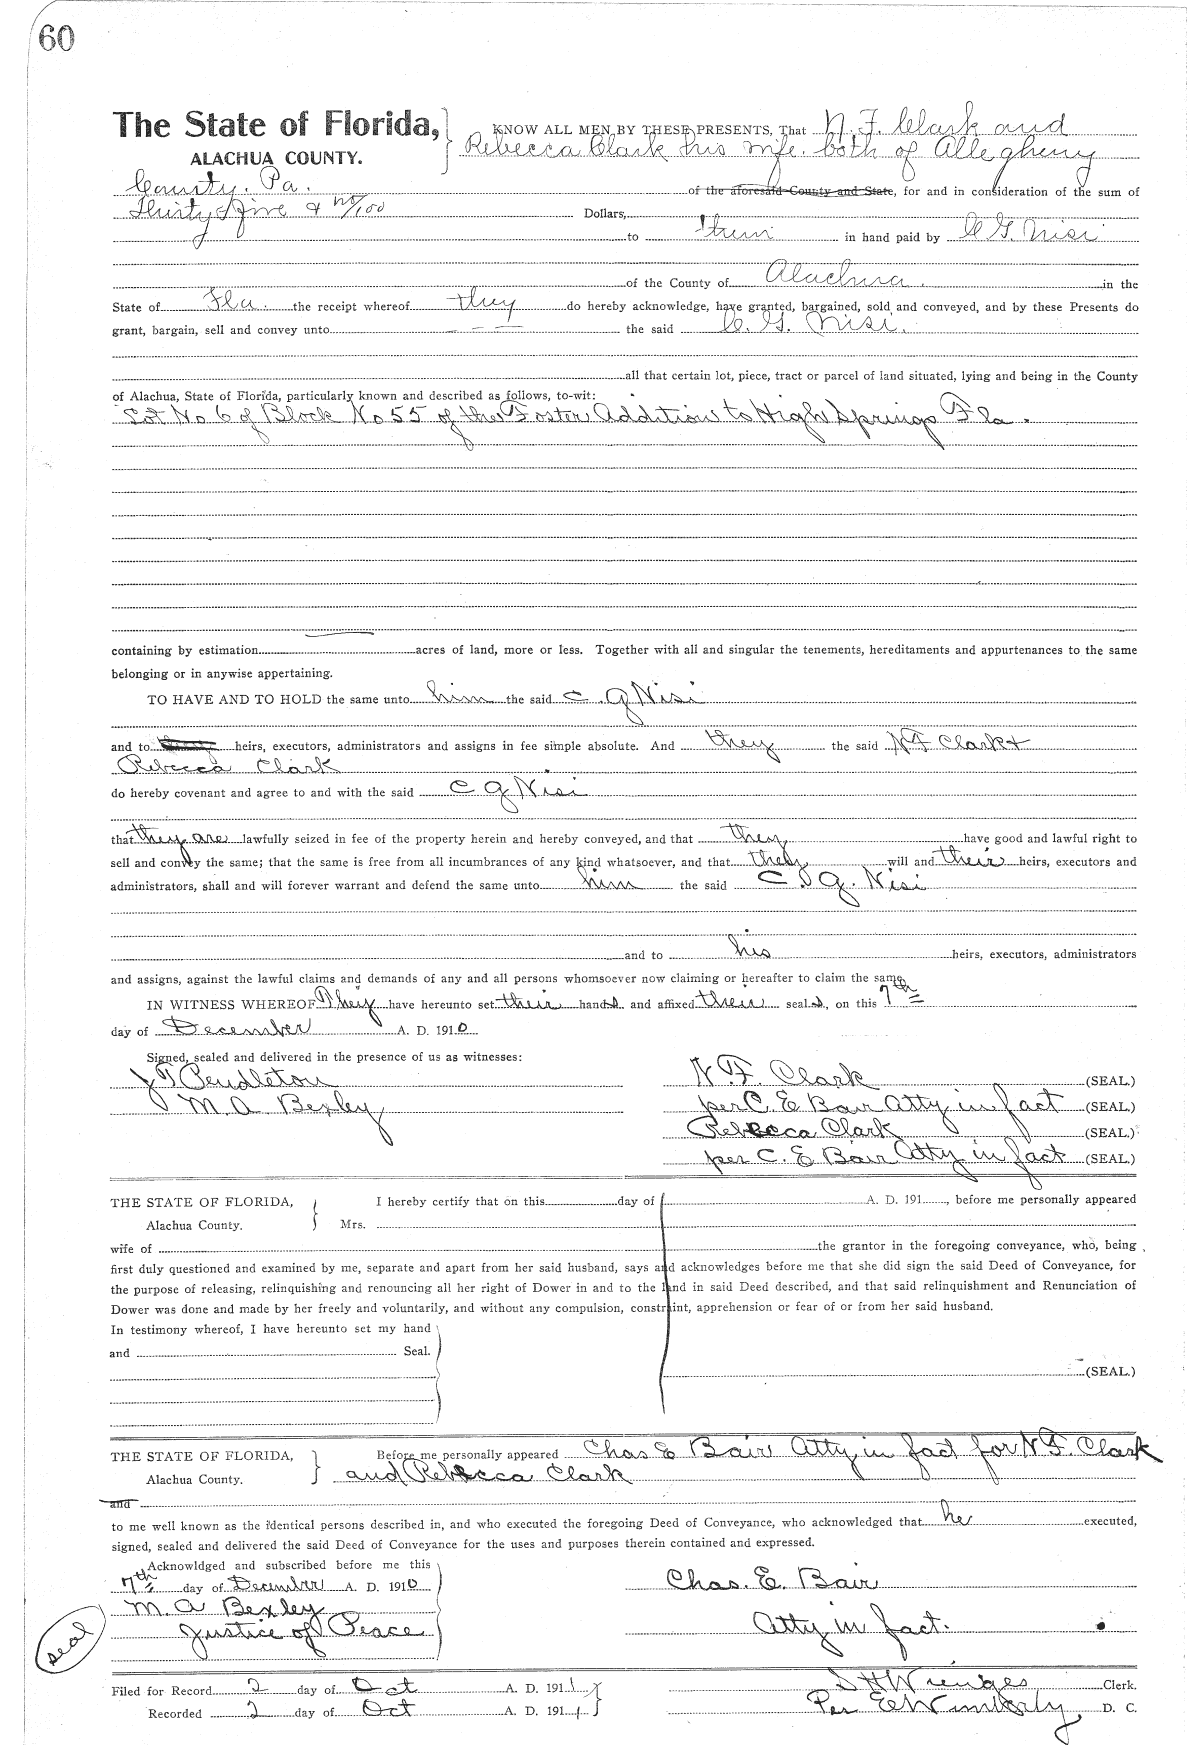 60
The State of Florida, KNOW ALL MEN BY THESE PRESENTS, That N. F. Clark and
ALACHUA COUNTY. Rebecca Clark his wife. both of Allegheny
County. Pa. of the aforesaid County and State, for and in consideration of the sum of
Thirty five & no/100 Dollars,
to them in hand paid by C G. Nisi
of the County of Alachua. in the
State of Fla. the receipt whereof they do hereby acknowledge, have granted, bargained, sold and conveyed, and by these Presents do
grant, bargain, sell and convey unto - - - the said C. G. Nisi.
all that certain lot, piece, tract or parcel of land situated, lying and being in the County
of Alachua, State of Florida, particularly known and described as follows, to-wit:
Lot No 6 of Block No 55 of the Foster Addition to High Springs Fla.
containing by estimation acres of land, more or less. Together with all and singular the tenements, hereditaments and appurtenances to the same
belonging or in anywise appertaining.
TO HAVE AND TO HOLD the same unto him the said C. G Nisi
and to heirs, executors, administrators and assigns in fee simple absolute. And they the said N F Clark +
Rebecca Clark
do hereby covenant and agree to and with the said C G Nisi
that they are lawfully seized in fee of the property herein and hereby conveyed, and that they have good and lawful right to
sell and convey the same; that the same is free from all incumbrances of any kind whatsoever, and that they will and their heirs, executors and
administrators, shall and will forever warrant and defend the same unto him the said C. G. Nisi
and to his heirs, executors, administrators
and assigns, against the lawful claims and demands of any and all persons whomsoever now claiming or hereafter to claim the same.
IN WITNESS WHEREOF They have hereunto set their hands and affixed their seals, on this 7th
day of December A. D. 1910
Signed, sealed and delivered in the presence of us as witnesses:
J T Pendleton N. F. Clark (SEAL.)
M. A Bexley per C. E Bair Atty in fact (SEAL.)
Rebecca Clark (SEAL.)
per C. E Bair Atty in fact (SEAL.)
THE STATE OF FLORIDA, I hereby certify that on this day of A. D. 191 , before me personally appeared
Alachua County. Mrs.
wife of the grantor in the foregoing conveyance, who, being
first duly questioned and examined by me, separate and apart from her said husband, says and acknowledges before me that she did sign the said Deed of Conveyance, for
the purpose of releasing, relinquishing and renouncing all her right of Dower in and to the land in said Deed described, and that said relinquishment and Renunciation of
Dower was done and made by her freely and voluntarily, and without any compulsion, constraint, apprehension or fear of or from her said husband.
In testimony whereof, I have hereunto set my hand
and Seal.
(SEAL.)
THE STATE OF FLORIDA, Before me personally appeared Chas E Bair Atty in fact for N F. Clark
Alachua County. and Rebecca Clark
and
to me well known as the identical persons described in, and who executed the foregoing Deed of Conveyance, who acknowledged that he executed,
signed, sealed and delivered the said Deed of Conveyance for the uses and purposes therein contained and expressed.
Acknowldged and subscribed before me this
7th day of December A. D. 1910 Chas. E. Bair
M. A Bexley
seal Justice of Peace Atty in fact.
Filed for Record 2 day of Oct A. D. 1911 S H Wienges Clerk.
Recorded 2 day of Oct A. D. 1911 Per E Wimberly D. C.